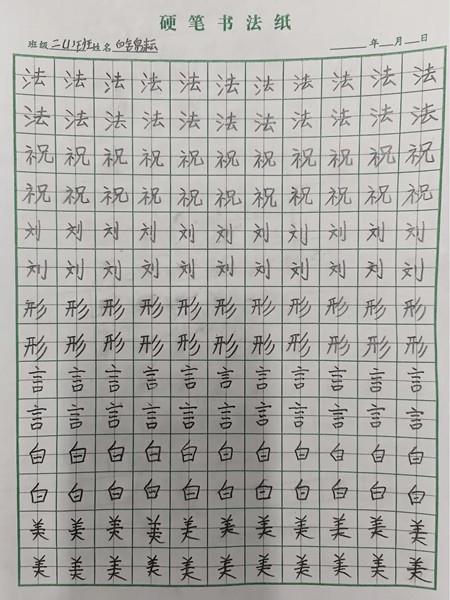 硬笔书法纸
班级 姓名 年 月 日
法法法法法法法法法法法
法法法法法法法法法法法
祝祝祝祝祝祝祝祝祝祝祝
祝祝祝祝祝祝祝祝祝祝祝
刘刘刘刘刘刘刘刘刘刘刘
刘刘刘刘刘刘刘刘刘刘刘
形形形形形形形形形形形
形形形形形形形形形形形
言言言言言言言言言言言
言言言言言言言言言言言
白白白白白白白白白白白
白白白白白白白白白白白
美美美美美美美美美美美
美美美美美美美美美美美